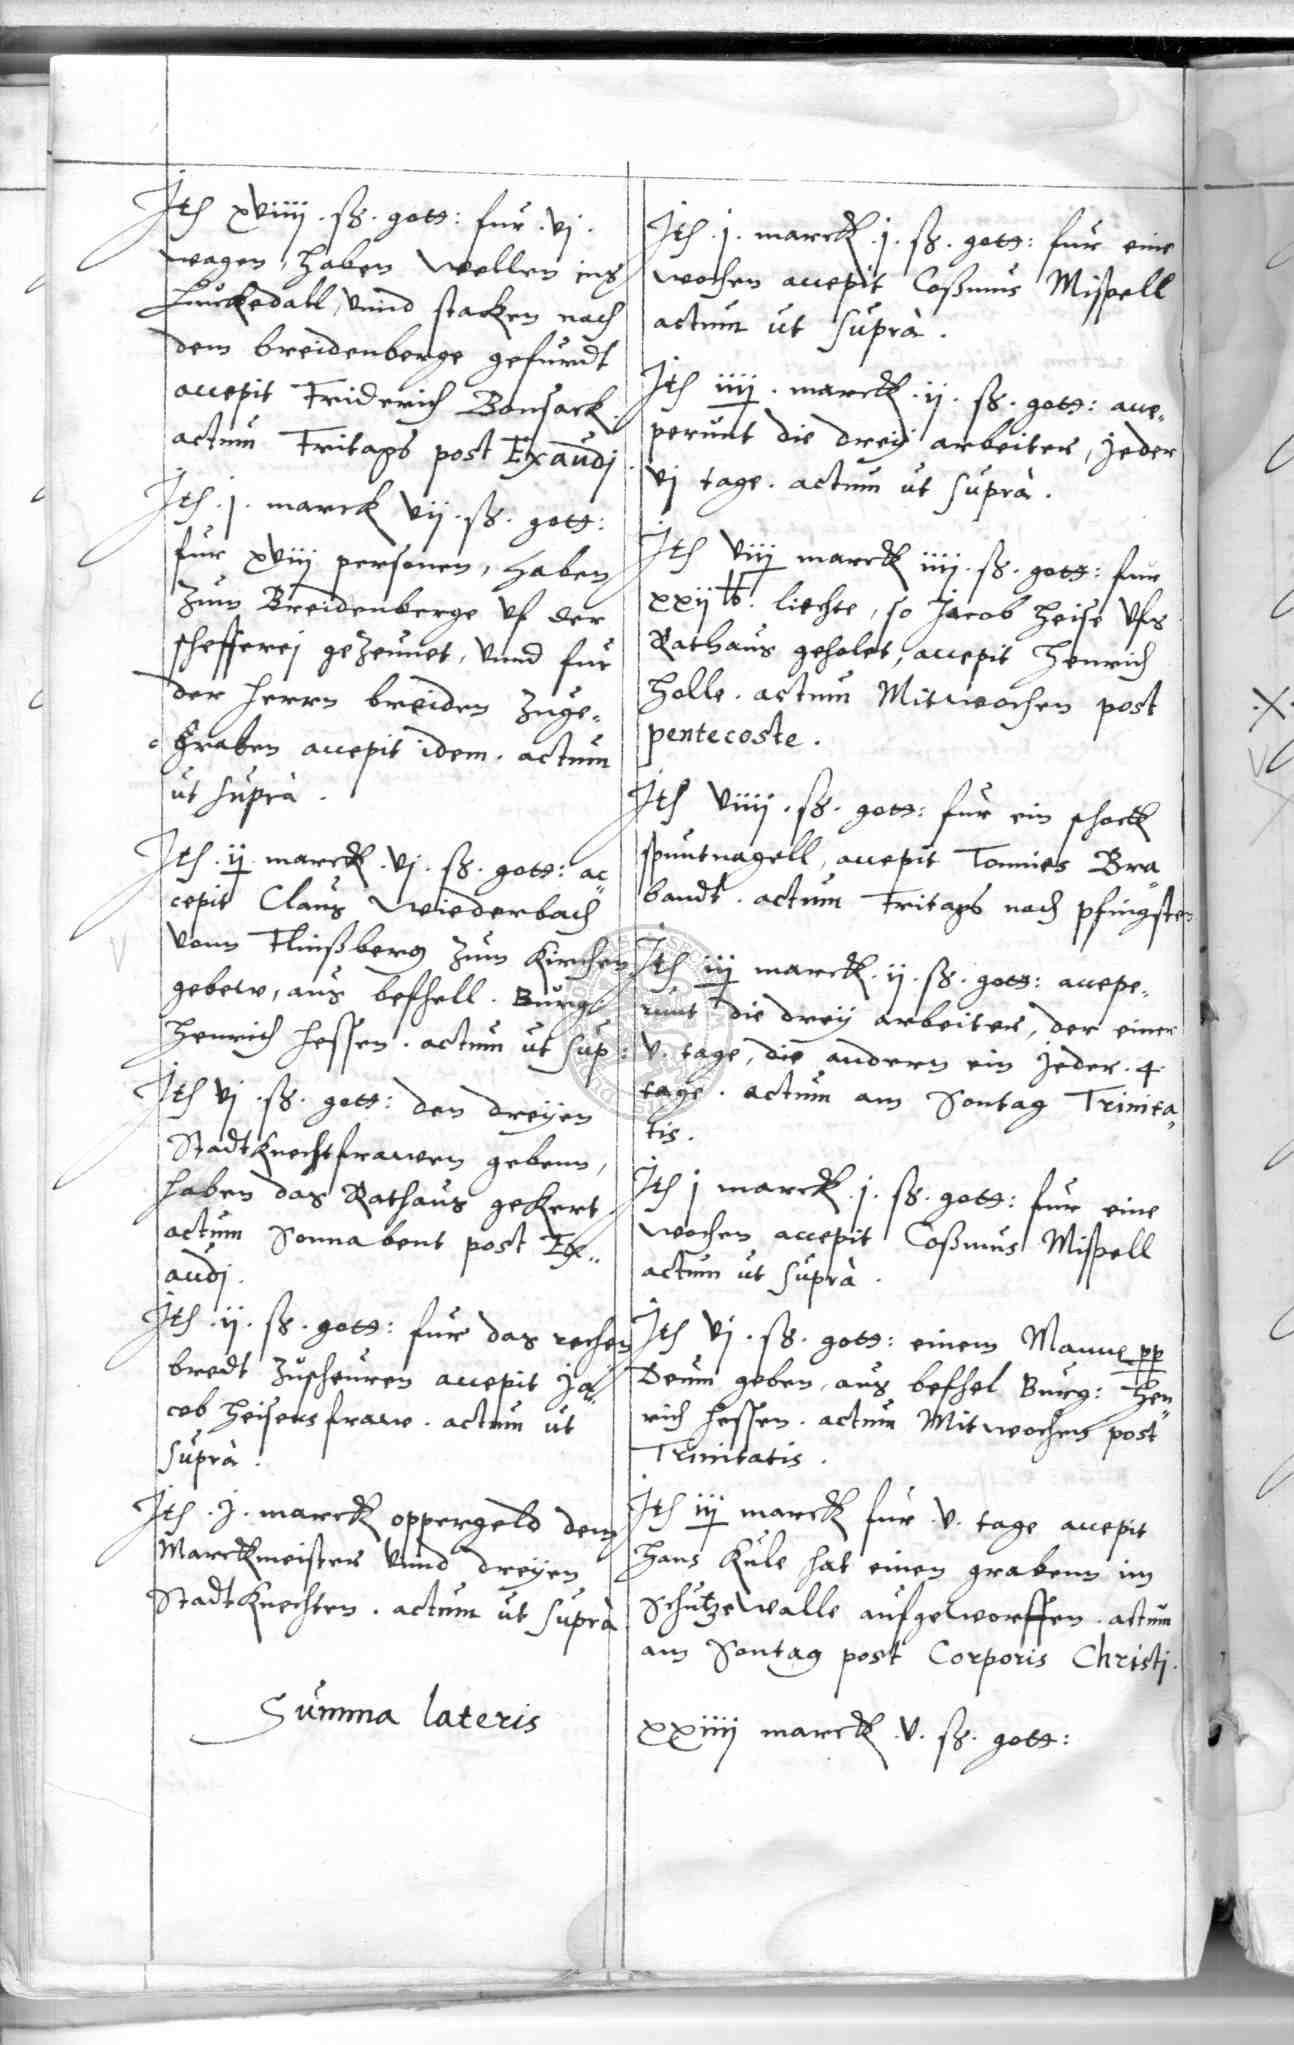 Jtem xviiij . ß . gott: fur . vj .
wagen, haben wellen ins
Luckedall, vnnd stacken nach
dem breidenberge gefurdt
accepit Friderich Bonsack .
actum Fritags post Exaudj .
Jtem . j . marck vij . ß . gott:
fur xviij personen, haben
zum Breidenberge vf der
schefferej gezeunet, vnnd fur
der herrn breiden zuge„
graben accepit idem . actum
ut suprà .
Jtem . ij . marck . vj . ß . gott: ac„
cepit Claus Wiederbach
vonn Flinßberg zum Kirchen
gebew, aus befhell . Burg:
Henrich Hessen . actum ut sup:
Jtem vj . ß . gott: den dreyen
Stadtknechtfrawen gebenn,
haben das Rathaus gekert
actum Sonnabent post Ex„
audj .
Jtem . ij . ß . gott: fur das rechen
bredt zuscheuren accepit Ja„
cob Heisens fraw . actum ut
suprà .
Jtem . j . marck oppergeld dem
Marckmeister vnnd dreyen
Stadtknechten . actum ut suprà
Summa lateris
Jtem . j . marck . j . ß . gott: fur eine
wochen accepit Coßmus Mispell
actum ut suprà .
Jtem iiij . marck . ij . ß . gott: acce„
perunt die dreij arbeiter, jeder
vj tage . actum ut suprà .
Jtem viij marck iiij . ß . gott: fur
xxij lb . liechte, so Jacob Heise vfs
Rathaus geholet, accepit Henrich
Holle . actum Mitwochen post
pentecoste .
Jtem viiij . ß . gott: fur ein schock
spuntnagell, accepit Tonnies Bra„
bandt . actum Fritags nach pfingsten
Jtem iij marck . ij . ß . gott: accepe„
runt die dreij arbeiter, der einer
v . tage, die andern ein jeder . 4 .
tage . actum am Sontag Trinita„
tis .
Jtem j marck . j . ß . gott: fur eine
wochen accepit Coßmus Mispell
actum ut suprà .
Jtem vj . ß . gott: einem Manne pp
Deum geben, aus befhel Burg: Hen„
rich Hessen . actum Mitwochen post
Trinitatis .
Jtem iij marck fur . v . tage accepit
Hans Kule hat einen grabenn im
Schutzewalle aufgeworffen . actum
am Sontag post Corporis Christj .
xxiiij marck . v . ß . gott: